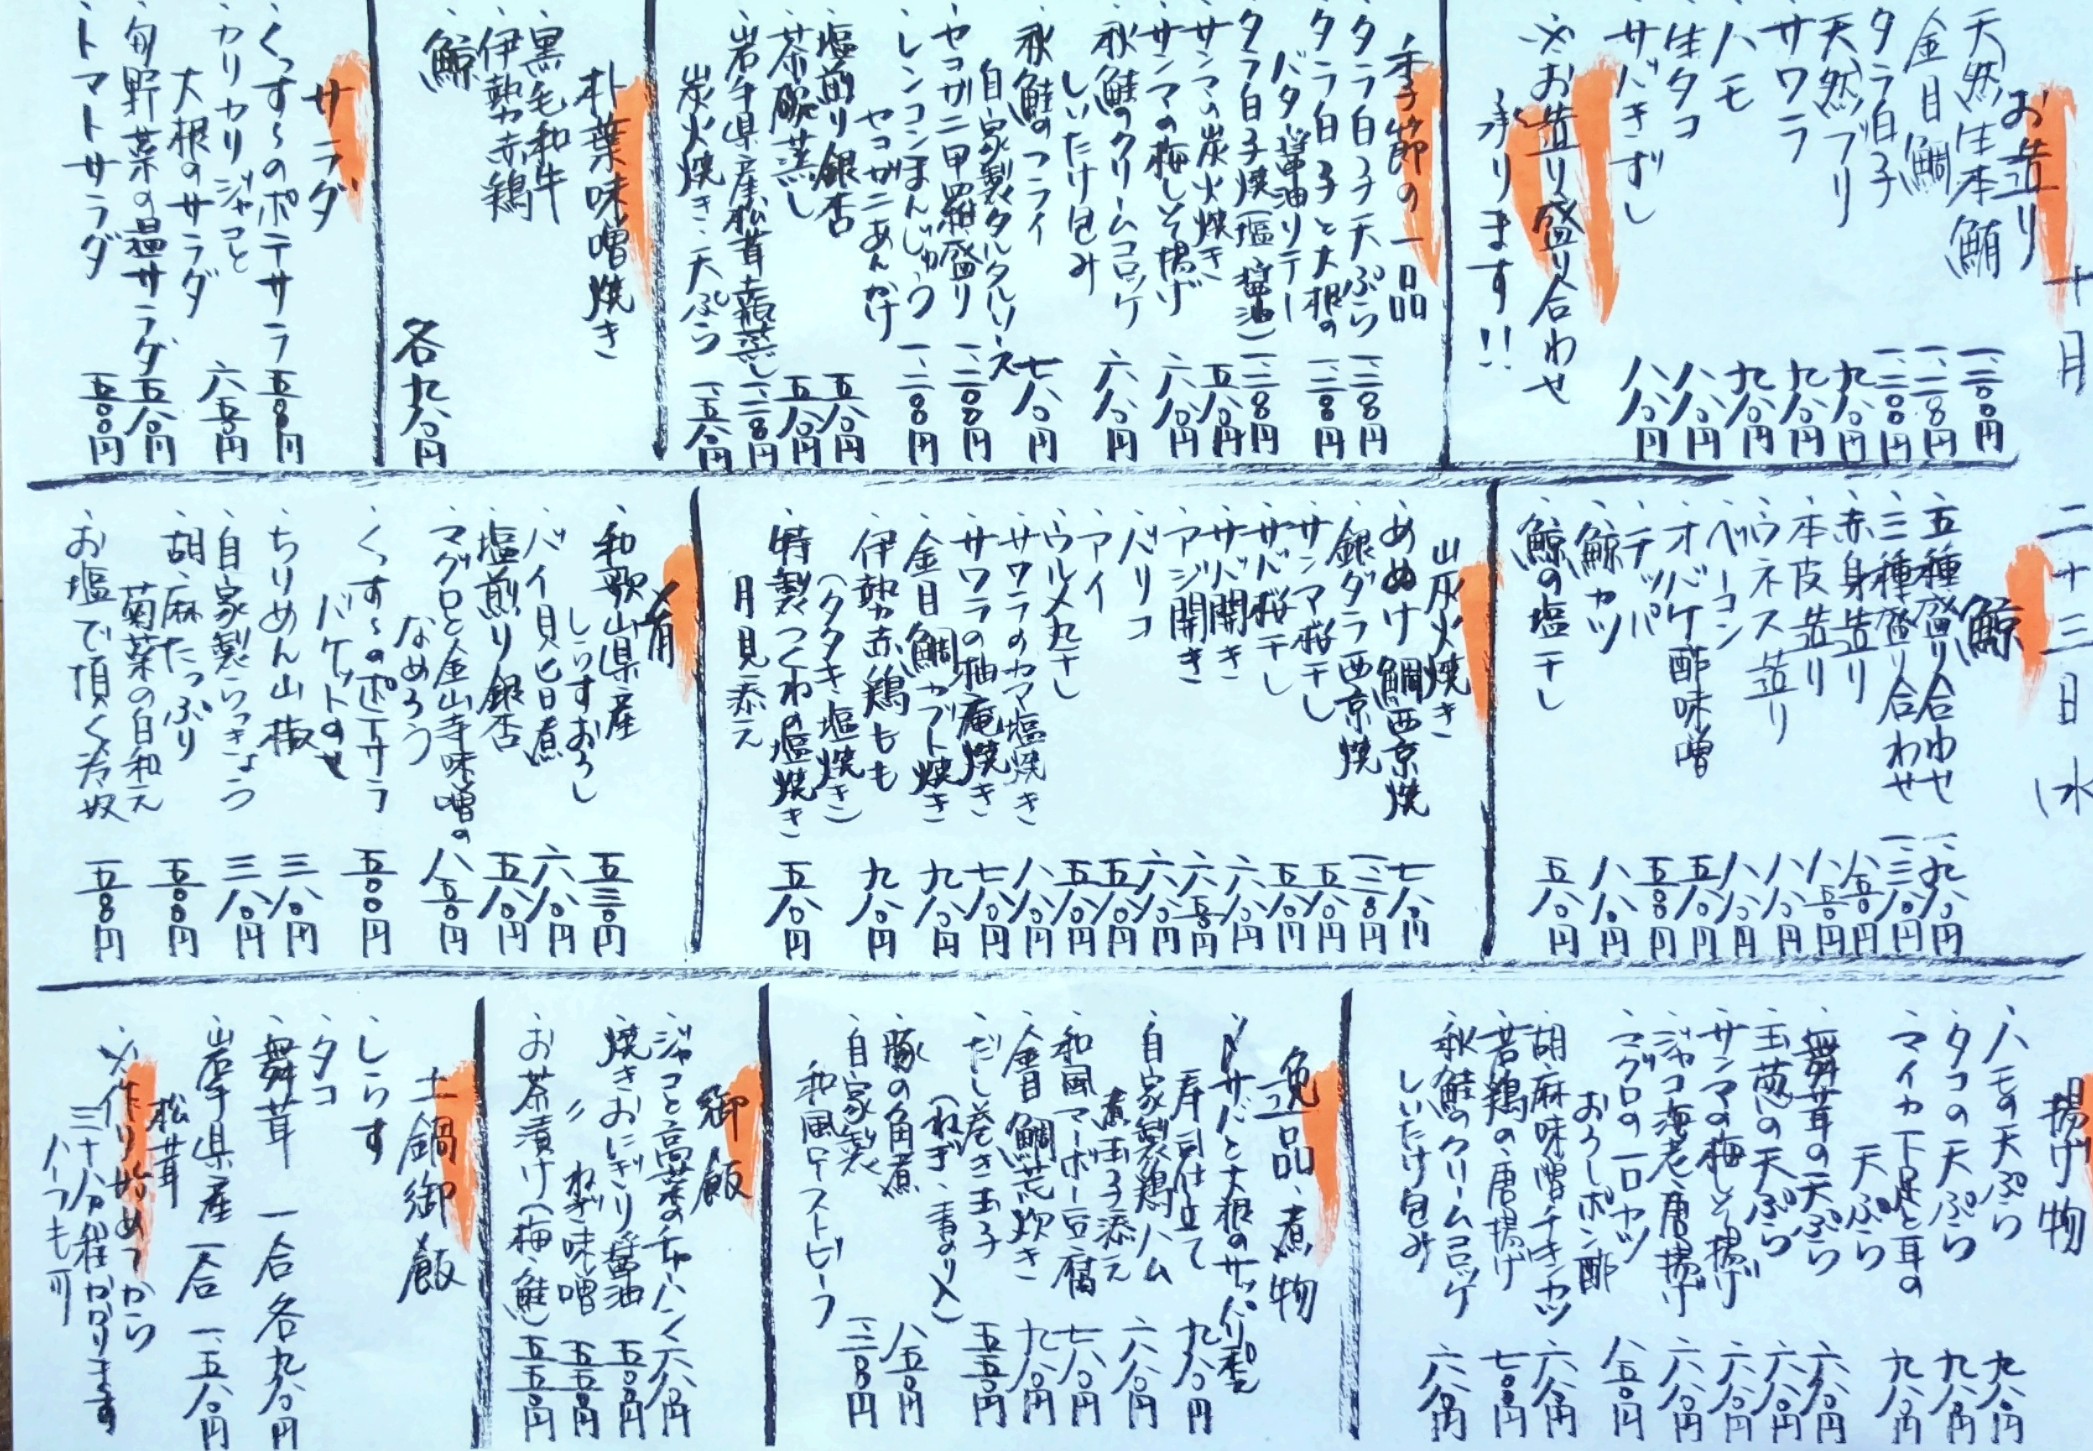 十月 二十三日 水
お造り
、天然生本鮪 一、三〇〇円
、金目鯛 一、二八〇円
、タラ白子 一、二〇〇円
、天然ブリ 九八〇円
、サワラ 九八〇円
、ハモ 九八〇円
、生タコ 八八〇円
、サバきずし 八八〇円
※お造り盛り合わせ
承ります!!
季節の一品
、タラ白子天ぷら 一、二八〇円
、タラ白子と大根の
バター醤油ソテー 一、二八〇円
、タラ白子焼(塩、醤油) 一、二八〇円
、サンマの炭火焼き 五八〇円
、サンマの梅しそ揚げ 六八〇円
、秋鮭のクリームコロッケ
しいたけ包み 六八〇円
、秋鮭のフライ
自家製タルタルソース 七八〇円
、セコガニ甲羅盛り 一、二〇〇円
、レンコンまんじゅう
セコガニあんかけ 一、二〇〇円
、塩煎り銀杏 五八〇円
、茶碗蒸し 五八〇円
、岩手県産松茸土瓶蒸し 一、二八〇円
炭火焼き、天ぷら 一、五八〇円
朴葉味噌焼き
、黒毛和牛
、伊勢赤鶏
、鯨
各九八〇円
サラダ
、くっす〜のポテサラ 五〇〇円
、カリカリジャコと
大根のサラダ 六五〇円
、旬野菜の温サラダ 五八〇円
、トマトサラダ 五〇〇円
鯨
、五種盛り合わせ 一、九八〇円
、三種盛り合わせ 一、三八〇円
、赤身造り 八五〇円
、本皮造り 八五〇円
、ウネス造り 八八〇円
、ベーコン 八八〇円
、オバケ酢味噌 五八〇円
、テッパ 五〇〇円
、鯨カツ 八八〇円
、鯨の塩干し 五八〇円
炭火焼き
、めぬけ鯛西京焼 七八〇円
、銀ダラ西京焼 一、二八〇円
、サンマ桜干し 五八〇円
、サバ桜干し 五八〇円
、サバ開き 六八〇円
、アジ開き 六五〇円
、バリコ 六八〇円
、アイ 五八〇円
、ウルメ丸干し 五五〇円
、サワラのカマ塩焼き 八八〇円
、サワラの柚庵焼き 七八〇円
、金目鯛カブト焼き 九八〇円
、伊勢赤鶏もも
(タタキ、塩焼き) 九八〇円
、特製つくねの塩焼き
月見添え 五八〇円
肴
、和歌山県産
しらすおろし 五三〇円
、バイ貝旨煮 六八〇円
、塩煎り銀杏 五八〇円
、マグロと金山寺味噌の
なめろう 八五〇円
、くっす〜のポテサラ
バケットのせ 五〇〇円
、ちりめん山椒 三八〇円
、自家製らっきょう 三八〇円
、胡麻たっぷり
菊菜の白和え 五〇〇円
、お塩で頂く冷奴 五〇〇円
揚げ物
、ハモの天ぷら 九八〇円
、タコの天ぷら 九八〇円
、マイカ下足と耳の
天ぷら 九八〇円
、舞茸の天ぷら 六八〇円
、玉葱の天ぷら 六八〇円
、サンマの梅しそ揚げ 六八〇円
、ジャコ海老唐揚げ 六八〇円
、マグロの一口カツ
おろしポン酢 八五〇円
、胡麻味噌チキンカツ 六八〇円
、若鶏の唐揚げ 七〇〇円
、秋鮭のクリームコロッケ
しいたけ包み 六八〇円
逸品、煮物
、〆サバと大根のサッパリ和え
寿司仕立て 九八〇円
、自家製鶏ハム
煮玉子添え 六八〇円
、和風マーボー豆腐 七八〇円
、金目鯛荒炊き 九八〇円
、だし巻き玉子
(ねぎ、青のり入) 五五〇円
、豚の角煮 八五〇円
、自家製
和風ローストビーフ 一、二八〇円
御飯
、ジャコと高菜のチャーハン 六八〇円
、焼きおにぎり醤油 五〇〇円
〃 ねぎ味噌 五五〇円
、お茶漬け(梅、鮭) 五五〇円
土鍋御飯
、しらす
、タコ
、舞茸 一合各九八〇円
、岩手県産
松茸 一合一、五八〇円
※作り始めてから
三十分程かかります
ハーフも可